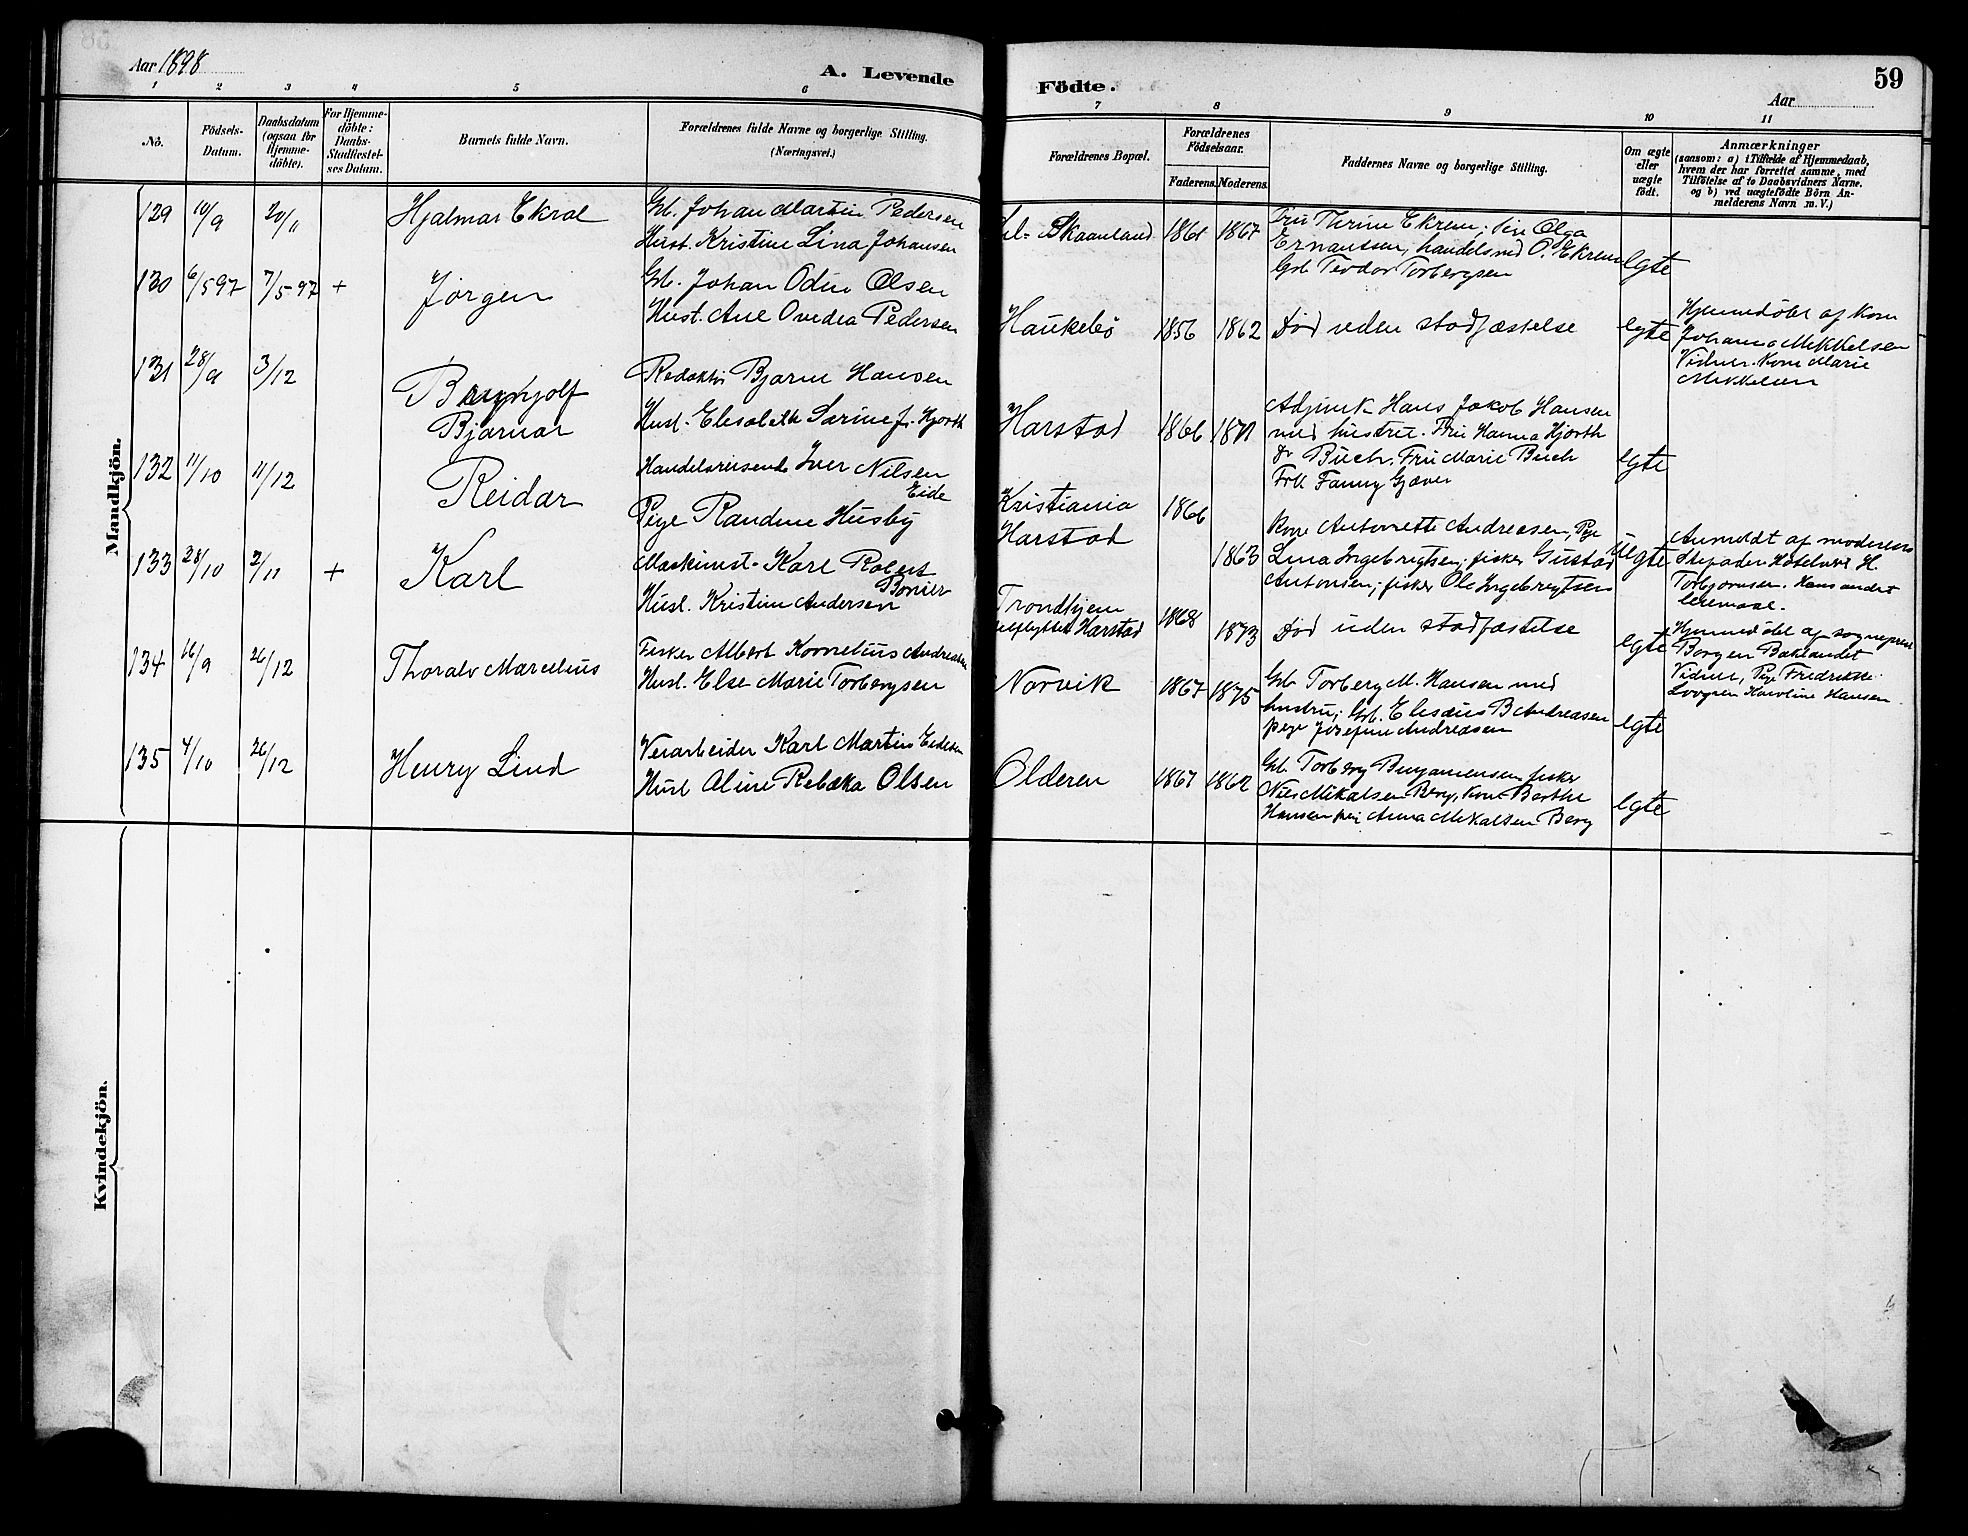 Aar 1898
A. Levende
Födte.
59
Aar
1 2 3 4 5 6 7 8 9 10 11
No.
Födsels-Datum.
Daabsdatum (ogsaa for Hjemme-döbte).
For Hjemme-döbte: Daabs-Stadfæstel-ses Datum.
Barnets fulde Navn.
Forældrenes fulde Navne og borgerlige Stilling.
(Næringsvei.)
Forældrenes Bopæl.
Forældrenes Födselsaar.
Faderens. Moderens.
Faddernes Navne og borgerlige Stilling.
Om ægte eller uægte födt.
Anmærkninger
(saasom: a) i Tilfælde af Hjemmedaab,
hvem der har forrettet samme, med
Tilföielse af to Daabsvidners Navne.
og b) ved uægtefödte Börn An-
melderens Navn m. V.)
Mandkjön.
129 10/9 20/11 Hjalmar Ekral
Grb. Johan Martin Pedersen
Hust. Kristine Lina Johansen
Skaanland 1861 1867
Fru Thrine Ekrem; Olga
Ernantsen, handelsmd O. Ekrem
Grb Teodor Torbergsen
egte
130 6/5 97 7/5-97 + Jørgen
Grb. Johan Odin Olsen
Hust. Ane Ovedia Pedersen
Haukebö 1856 1862 Død uden stadfæstelse egte
Hjemmedøbt af Kone
Johanna Mikkelsen
Vidner. Kone Marie
Mikkelsen
131 28/9 3/12 Brynhjolf
Bjarnar
Redaktør Bjarne Hansen
Hust. Elisabeth Sarine f. Hjorth
Harstad 1866 1871
Adjunk Hans Jakob Hansen
med hustru. Fru Hanna Hjorth
Dr Buch. Fru Marie Buch
Frk Fanny Gjæver
egte
132 11/10 11/12 Reidar
Handelsreisende Iver Nilsen
Eide
Pige Randine Husby
Kristiania 1866
Harstad 1863
Kone Antonette Andreasen, Pige
Lina Ingebrigtsen; fisker Gustad
Antonsen; fisker Ole Ingebrigtsen
uegte
Anmeldt af moderens
Hotelvært H.
Torbjørnsen. Hans andet
leiermaal.
133 28/10 2/11 + Karl
Maskinist. Karl Robert
Hust. Kristine Andersen
Trondhjem
Harstad 1868 1873 Død uden stadfæstelse egte
Hjemmedøbt af sogneprest
Borgen Baklandet
Vidner, Pige Fredrikke
Lovgren Karoline Hansen
134 16/9 26/12 Thoralv Marcelius
Fisker Albert Kornelius Andreasen
Hust. Else Marie Torbergsen
Narvik 1867 1875
Grb Torberg M. Hansen med
hustru; Grb. Elisæus B Andreasen
pige Josefine Andreasen
egte
135 4/10 26/12 Henry Lind
Veiarbeider Karl Martin Eidesen
Hust Aline Rebæka Olsen
Olderen 1867 1862
Grb. Torberg Benjaminsen, fisker
Nils Mikalsen Berg, Kone Berthe
Hansen pige Anna Mikalsen Berg
egte
Kvindekjön.